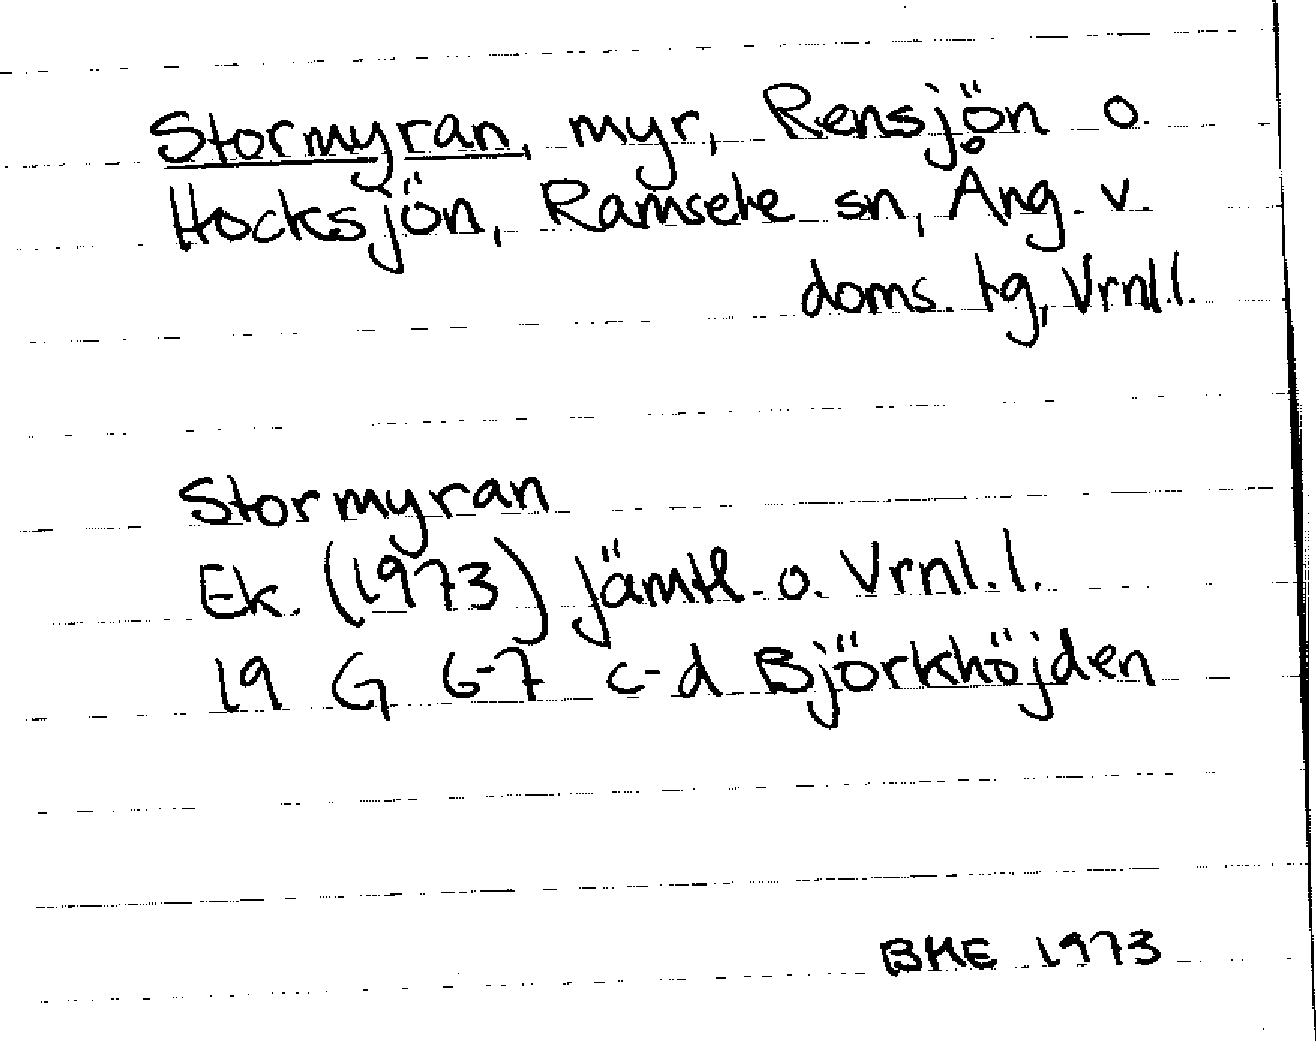 Stormyran, myr, Rensjön o.
Hocksjön, Ramsele sn, Ång. v.
doms. tg, Vrnl.l.
Stormyran
Ek. (1973) Jämtl. o. Vrnl.l.
19 G 6-7 c-d Björkhöjden
BME 1973